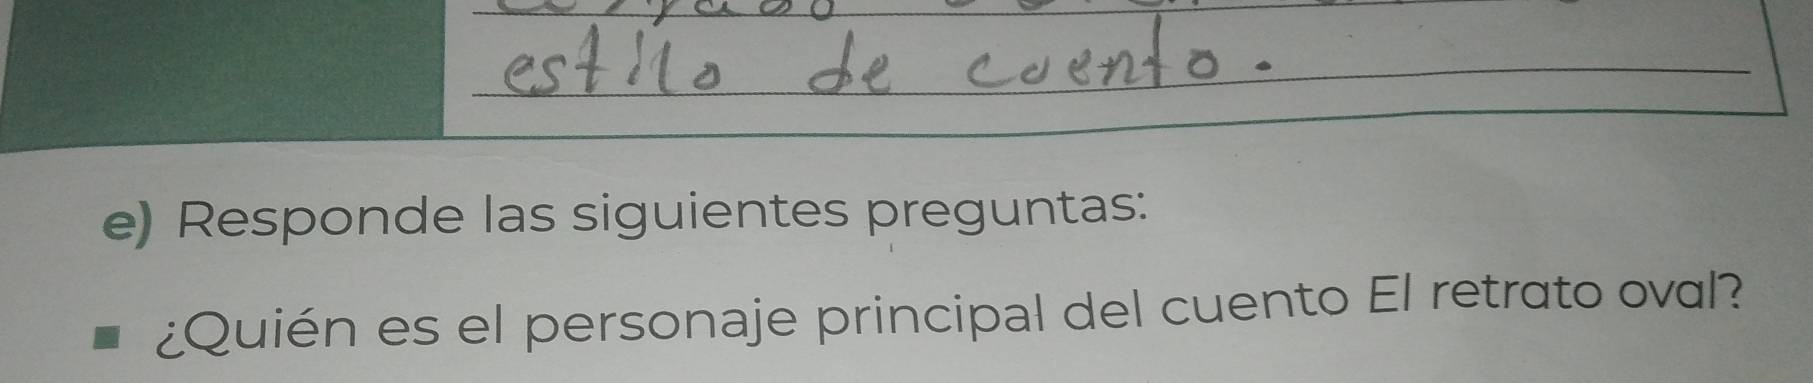 estilo de cuento.
e) Responde las siguientes preguntas:
¿Quién es el personaje principal del cuento El retrato oval?